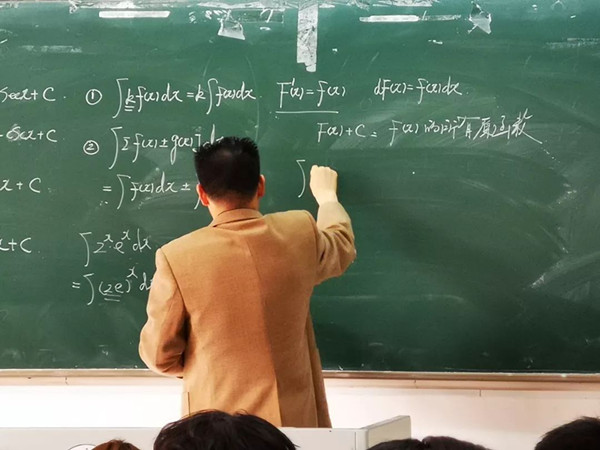 secx+C
① ∫kf(x)dx=k∫f(x)dx.
F'(x)=f(x) dF(x)=f(x)dx.
+C
② ∫[f(x)±g(x)]d
F(x)+C = f(x)的所有原函数
x+C
=∫f(x)dx±∫
∫
x+C
∫2ˣeˣdx
=∫(2e)ˣd